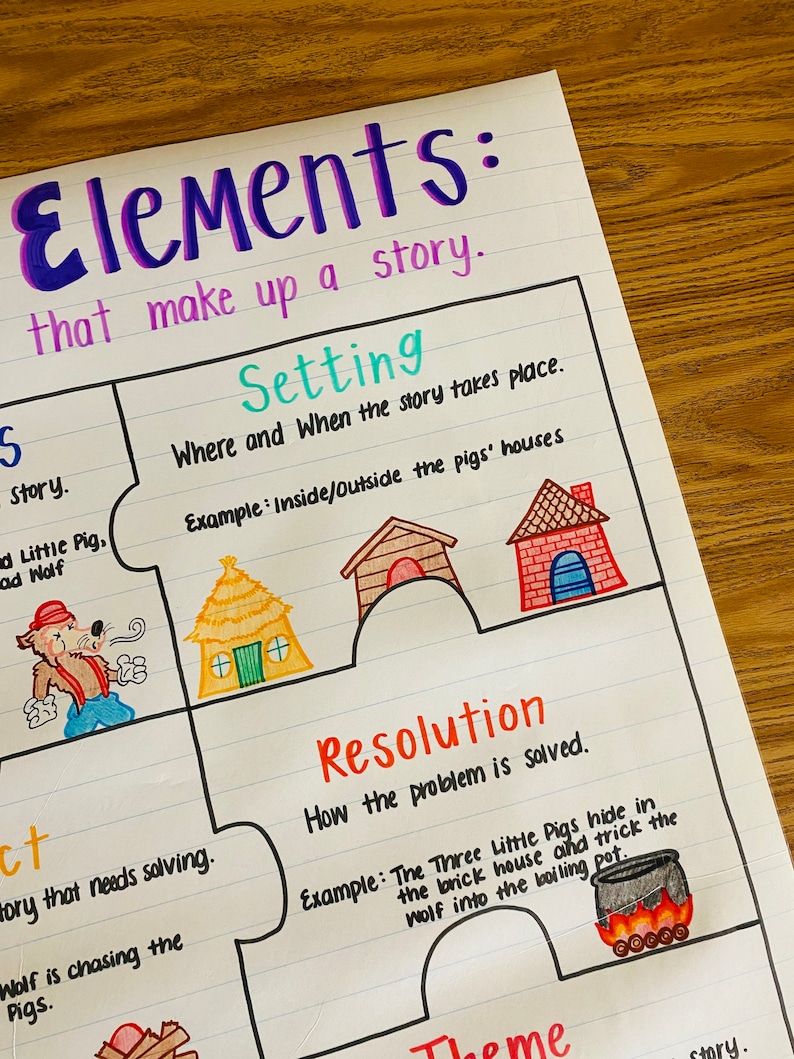 Elements:
that make up a story.
s
story.
Little Pig,
Wolf
Setting
Where and When the story takes place.
Example: Inside/Outside the pigs' houses
ct
story that needs solving.
Wolf is chasing the
Pigs.
Resolution
How the problem is solved.
Example: The Three Little Pigs hide in
the brick house and trick the
wolf into the boiling pot.
Theme
story.